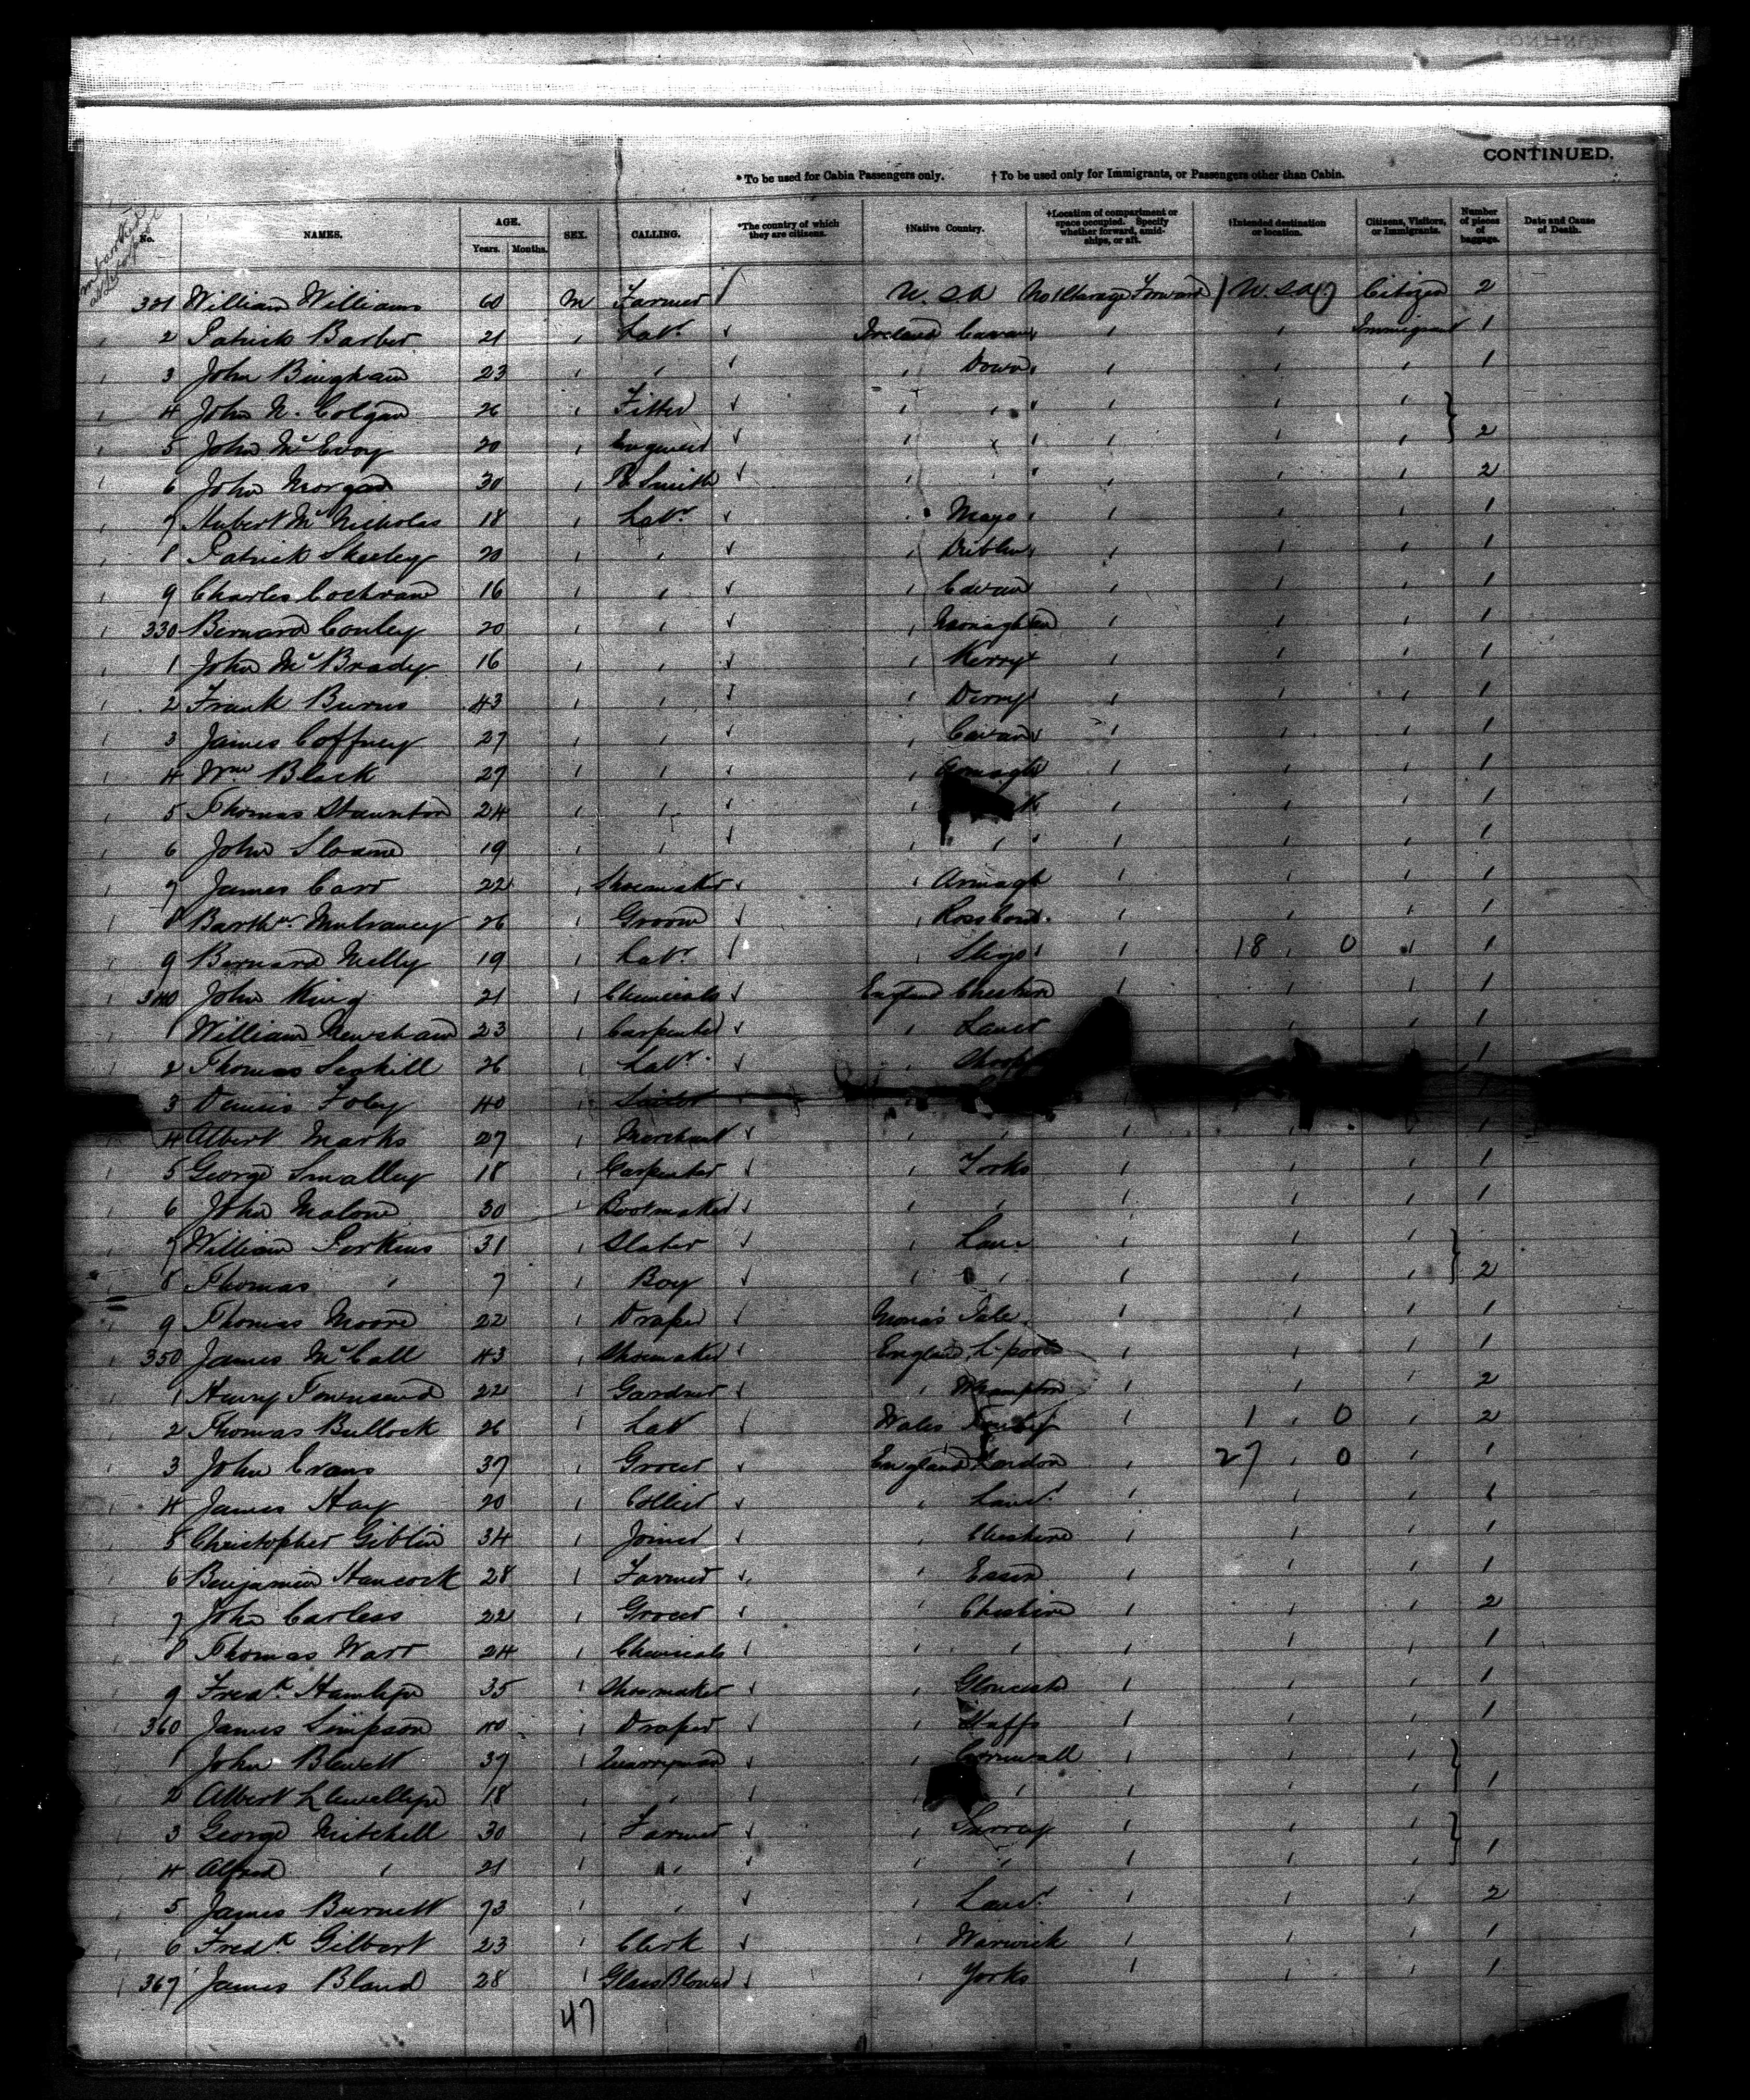 CONTINUED.
*To be used for Cabin Passengers only. †To be used only for Immigrants, or Passengers other than Cabin.
No. NAMES. AGE. Years. Months. SEX. CALLING. *The country of which they are citizens. †Native Country. †Location of compartment or space occupied. Specify whether forward, amidships, or aft. †Intended destination or location. Citizens, Visitors, or Immigrants. Number of pieces of baggage. Date and Cause of Death.
321 William Williams 60 M Farmer U.S.A No 1 Steerage Forward U.S.A Citizen 2
2 Patrick Barber 21 " Labr Ireland Cavan " " Immigrant 1
3 John Bingham 23 " " " Down " " " 1
4 John N. Colgan 26 " Fitter " " " " "
5 John McEvoy 20 " Engineer " " " " " 2
6 John Morgan 30 " B Smith " " " " " 2
7 Hubert McNicholas 18 " Labr " Mayo " " " 1
8 Patrick Skelly 20 " " " Dublin " " " 1
9 Charles Cochrane 16 " " " Cavan " " " 1
330 Bernard Conley 20 " " " Monaghan " " " 1
1 John McBrady 16 " " " Kerry " " " 1
2 Frank Burns 43 " " " Derry " " " 1
3 James Coffney 27 " " " Cavan " " " 1
4 Wm Black 27 " " " Armagh " " " 1
5 Thomas Staunton 24 " " " " " " 1
6 John Sloane 19 " " " " " " " 1
7 James Carr 22 " Shoemaker " Armagh " " " 1
8 Barthw Mulvaney 26 " Groom " Rosscom. " " " 1
9 Bernard Melly 19 " Labr " Sligo " 18 " 0 " 1
340 John King 21 " Chemicals England Cheshire " " " 1
1 William Newsham 23 " Carpenter " Lancr " " 1
2 Thomas Gaskill 26 " Labr " Shrop " 1
3 Dennis Foley 40 "
4 Albert Marks 27 " Merchant " " " " " 1
5 George Smalley 18 " Carpenter " Yorks " " " 1
6 John Malone 30 " Bootmaker " " " " " 1
7 William Perkins 31 " Slater " Lanc " " "
8 Thomas " 7 " Boy " " " " " 2
9 Thomas Moore 22 " Draper Mona's Isle " " " 1
350 James McCall 43 " Shoemaker England L-pool " " " 1
1 Henry Townsend 22 " Gardner " Whampton " " " 2
2 Thomas Bullock 26 " Lab Wales Tenby " 1 " 0 " 2
3 John Evans 37 " Grocer England London " 27 " 0 " 1
4 James Hay 20 " Collier " Lancr " " " 1
5 Christopher Giblin 34 " Joiner " Cheshire " " " 1
6 Benjamin Hancock 28 " Farmer " Essex " " " 1
7 John Carless 22 " Grocer " Cheshire " " " 2
8 Thomas Warr 24 " Chemicals " " " " " 1
9 Fredk Hamlyn 35 " Shoemaker " Gloucester " " " 1
360 James Simpson 40 " Draper " Staffs " " " 1
1 John Blewett 37 " Quarryman " Cornwall " " "
2 Albert Llewellyn 18 " " " " " " " 1
3 George Mitchell 30 " Farmer " Surrey " " "
4 Alfred " 21 " " " " " " " 1
5 James Burnett 73 " " " Lancr " " " 2
6 Fredk Gilbert 23 " Clerk " Warwick " " " 1
367 James Bland 28 " Glass Blower " Yorks " " " 1
47